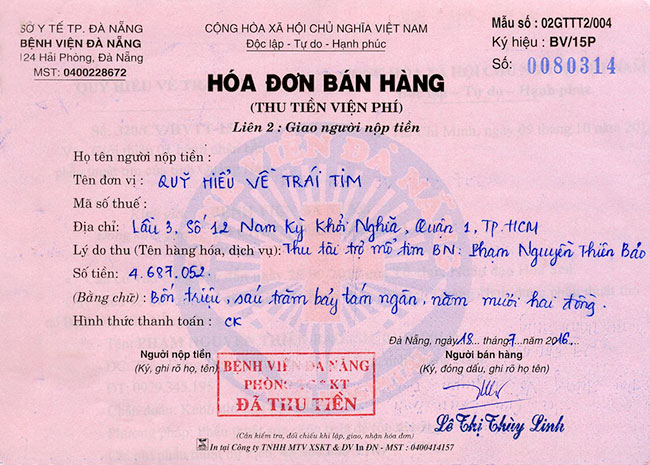 SỞ Y TẾ TP. ĐÀ NẴNG
BỆNH VIỆN ĐÀ NẴNG
124 Hải Phòng, Đà Nẵng
MST: 0400228672
CỘNG HÒA XÃ HỘI CHỦ NGHĨA VIỆT NAM
Độc lập - Tự do - Hạnh phúc
Mẫu số : 02GTTT2/004
Ký hiệu : BV/15P
Số: 0080314
HÓA ĐƠN BÁN HÀNG
(THU TIỀN VIỆN PHÍ)
Liên 2 : Giao người nộp tiền
Họ tên người nộp tiền :
Tên đơn vị : QUỸ HIỂU VỀ TRÁI TIM
Mã số thuế :
Địa chỉ: Lầu 3, Số 12 Nam Kỳ Khởi Nghĩa, Quận 1, TP.HCM
Lý do thu (Tên hàng hóa, dịch vụ): Thu tài trợ mổ tim BN: Phạm Nguyễn Thiên Bảo
Số tiền: 4.687.052.
(Bằng chữ) : Bốn triệu, sáu trăm bảy tám ngàn, năm mươi hai đồng.
Hình thức thanh toán : CK
Đà Nẵng, ngày 18 tháng 7 năm 2016
Người nộp tiền
(Ký, ghi rõ họ, tên)
BỆNH VIỆN ĐÀ NẴNG
PHÒNG KT
ĐÃ THU TIỀN
Người bán hàng
(Ký, đóng dấu, ghi rõ họ tên)
Lê Thị Thùy Linh
(Cần kiểm tra, đối chiếu khi lập, giao, nhận hóa đơn)
In tại Công ty TNHH MTV XSKT & DV In ĐN - MST : 0400414157